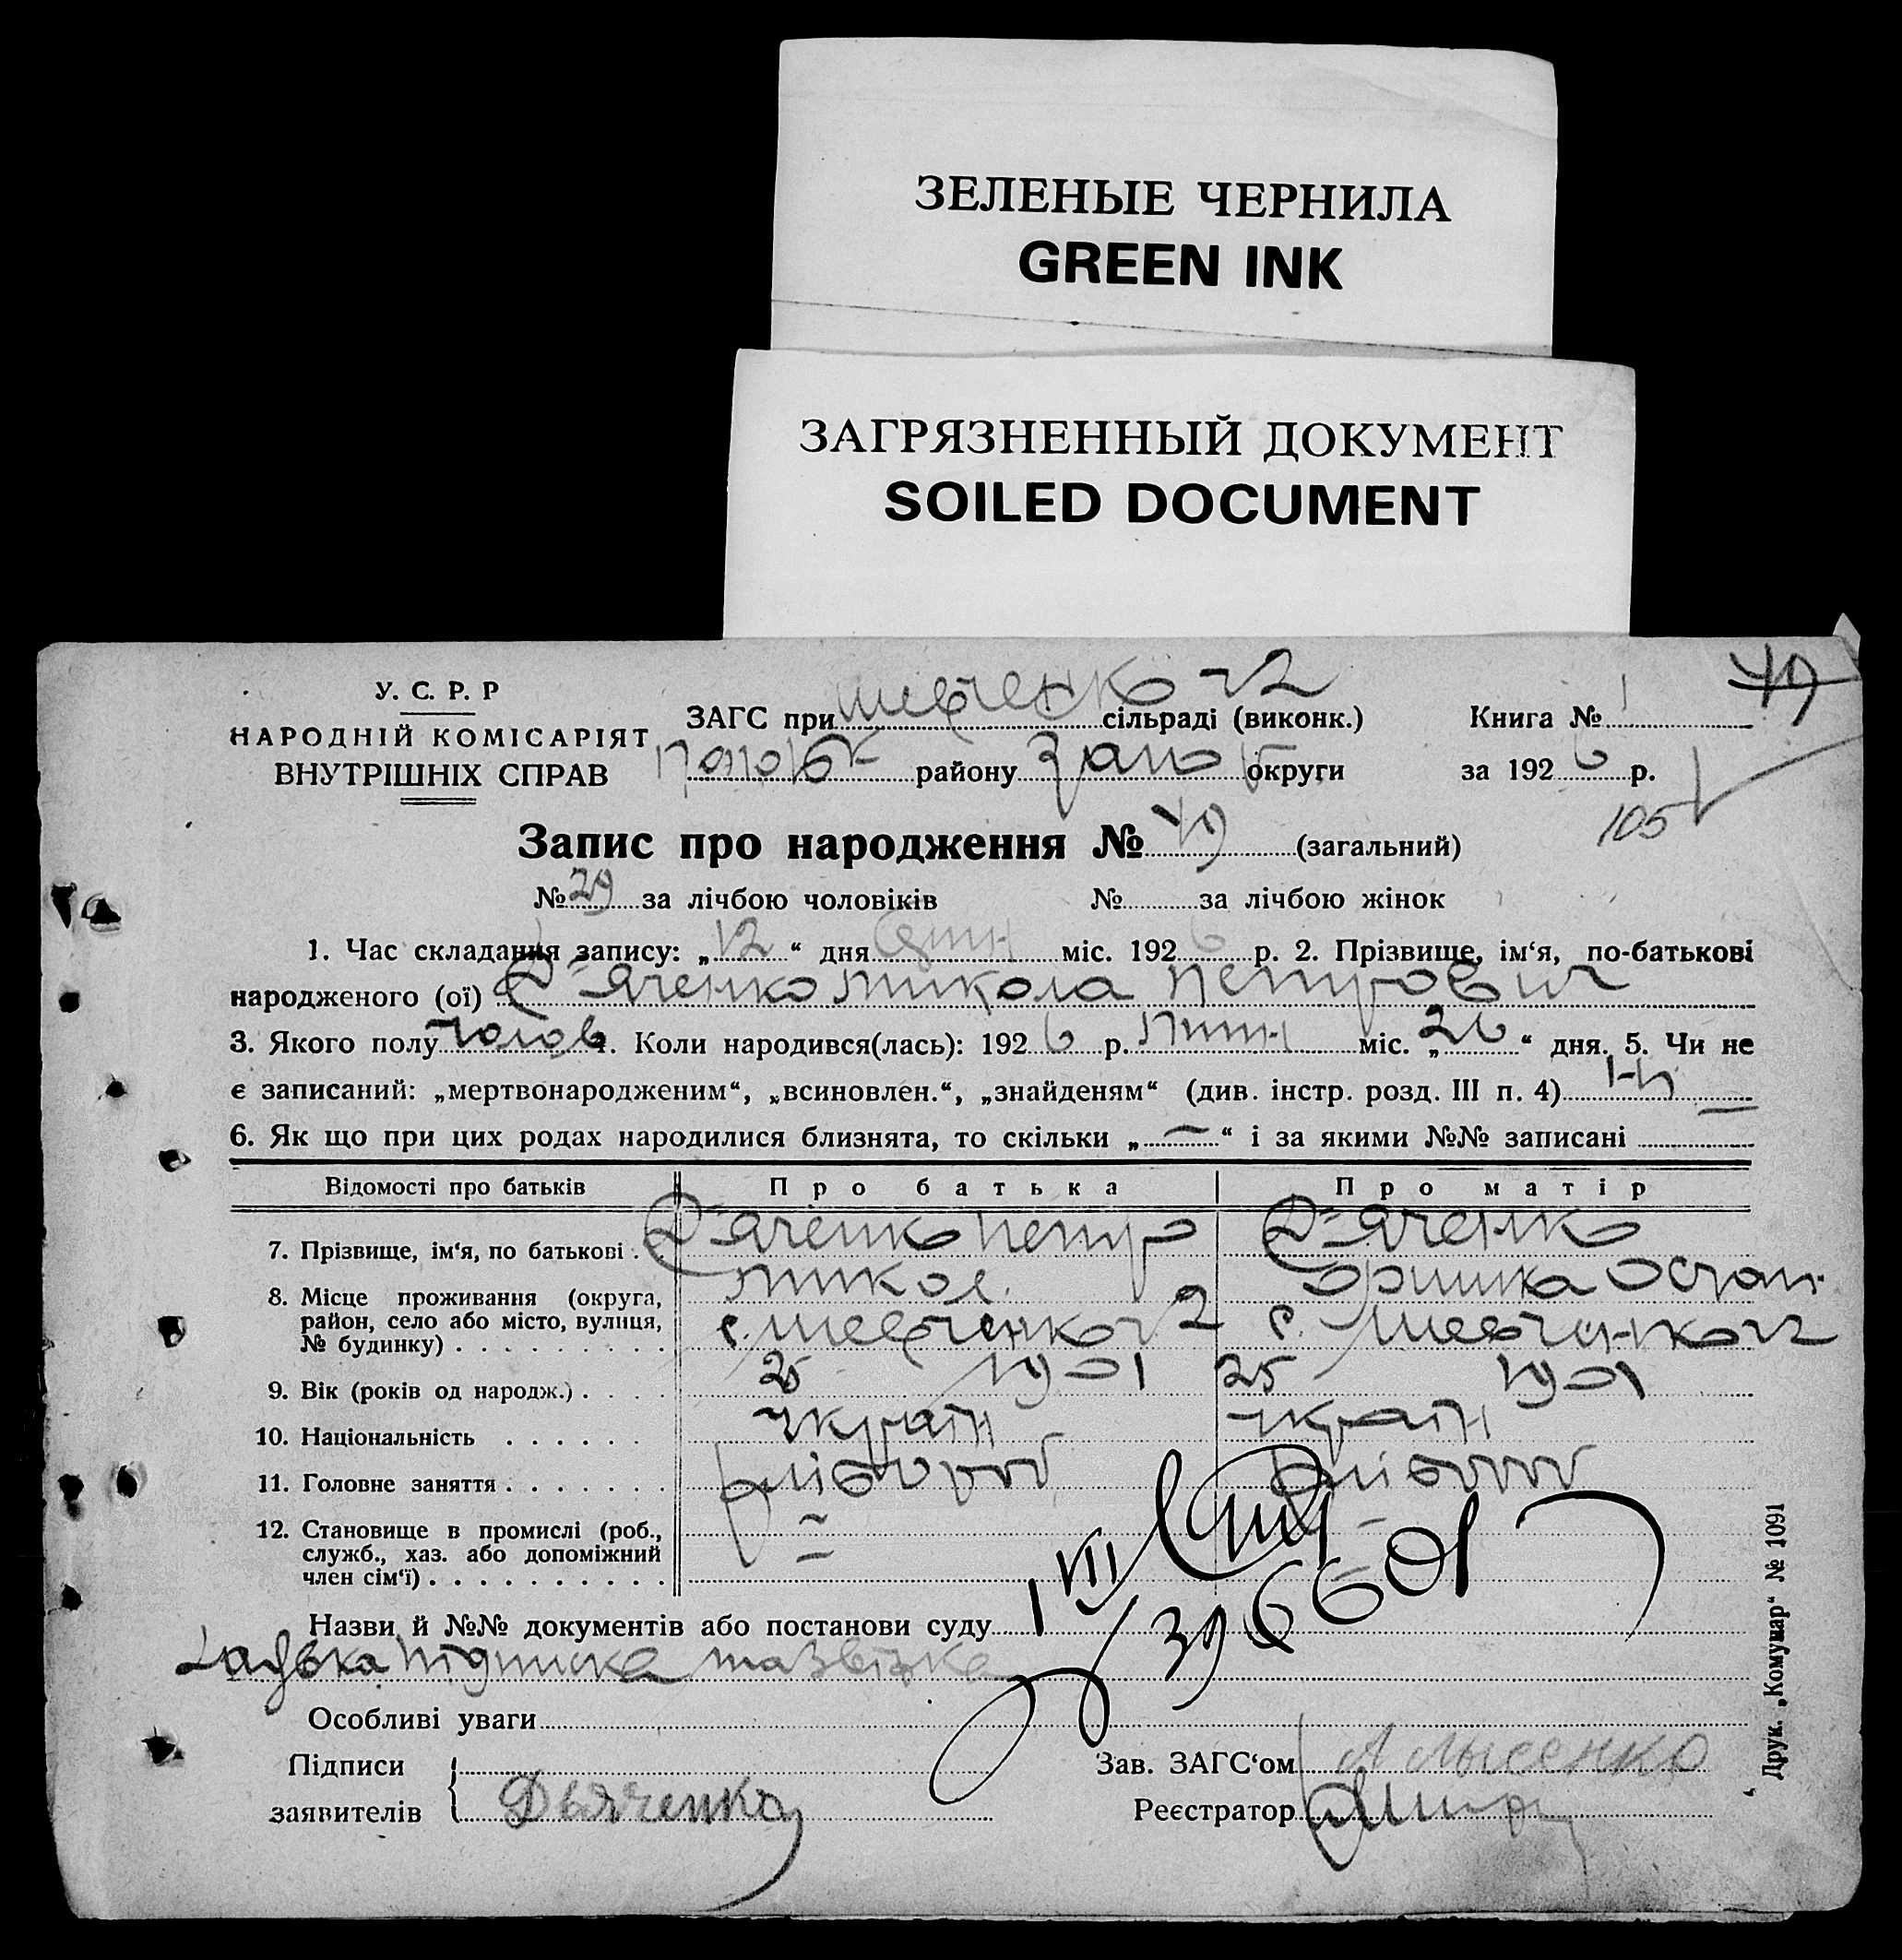 ЗЕЛЕНЫЕ ЧЕРНИЛА
GREEN INK
ЗАГРЯЗНЕННЫЙ ДОКУМЕНТ
SOILED DOCUMENT
49
У. С. Р. Р
НАРОДНІЙ КОМІСАРІЯТ
ВНУТРІШНІХ СПРАВ
ЗАГС при Шевченко 2 сільраді (виконк.) Книга № 1
району Запо округи за 1926 р.
105
Запис про народження № 49 (загальний)
№ 29 за лічбою чоловіків № за лічбою жінок
1. Час складання запису: „12“ дня міс. 1926 р. 2. Прізвище, ім‘я, по-батькові
народженого (ої) Д-яченко Микола Петрович
3. Якого полу чолов 4. Коли народився(лась): 1926 р. міс. „26“ дня. 5. Чи не
є записаний: „мертвонародженим“, „всиновлен.“, „знайденям“ (див. інстр. розд. III п. 4) Ні
6. Як що при цих родах народилися близнята, то скільки „—“ і за якими №№ записані —
Відомості про батьків Про батька Про матір
7. Прізвище, ім‘я, по батькові Д-яченко Петр Микол. Д-яченко Оришка Остап.
8. Місце проживання (округа,
район, село або місто, вулиця,
№ будинку) с. Шевченко 2 с. Шевченко 2
9. Вік (років од народж.) 25 1901 25 1901
10. Національність україн україн
11. Головне заняття хлібороб хлібороб
12. Становище в промислі (роб.,
служб., хаз. або допоміжний
член сім‘ї) — —
Назви й №№ документів або постанови суду
1 VIII 396601
підписка та звірка
Особливі уваги
Підписи Зав. ЗАГС‘ом А Лысенко
заявителів Дьяченко Реєстратор
Друк. „Комунар“ № 1091